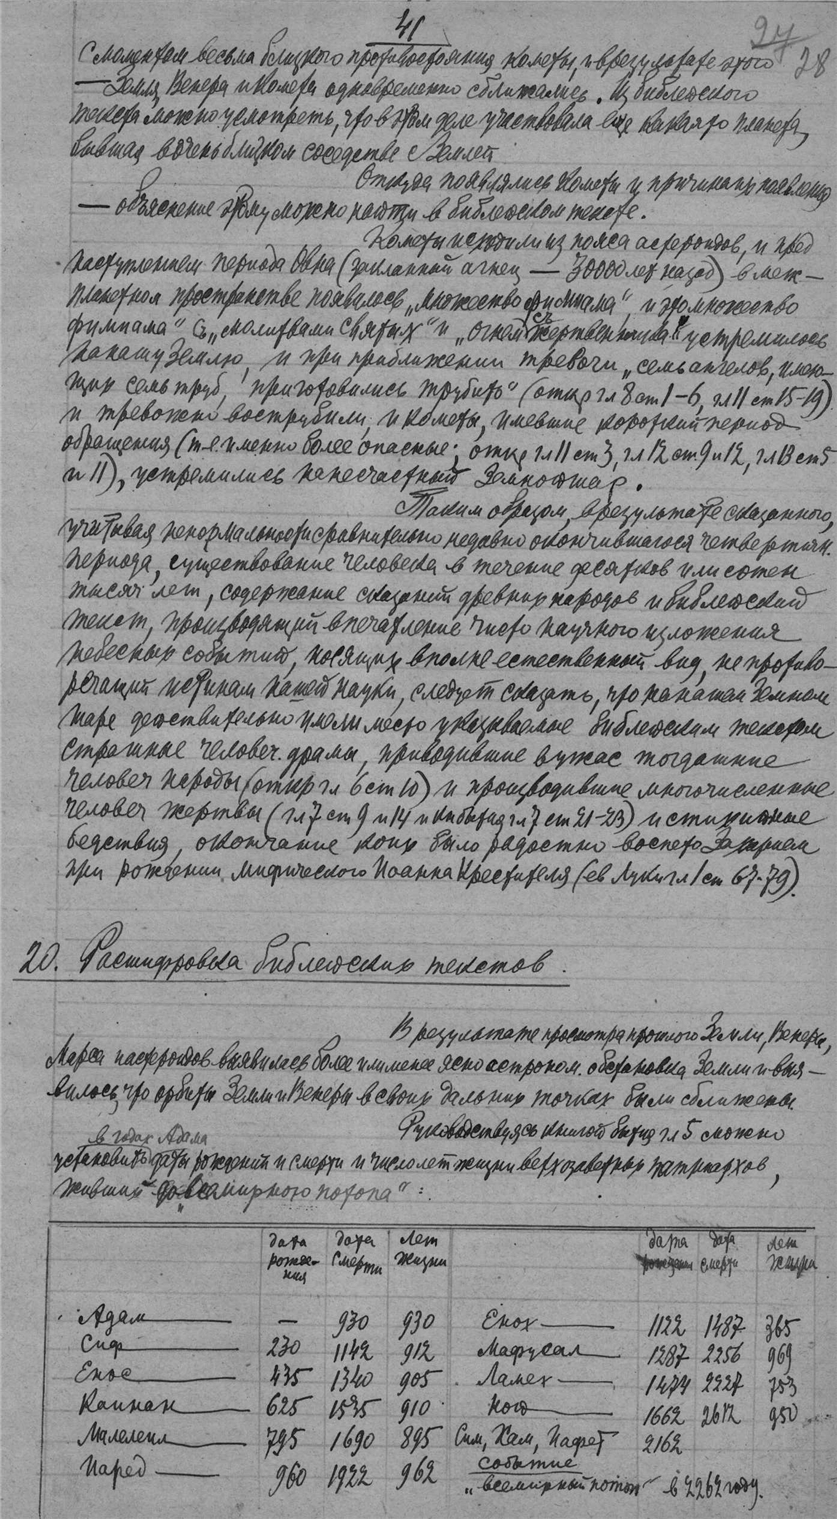 41
27
28
с моментом весьма близкого противостояния кометы, и в результате этого
— Земля Венера и Комета одновременно сближались. Из библейского
текста можно усмотреть, что в этом деле участвовала еще какая то планета,
бывшая в очень близком соседстве с Землей
Откуда появлялись Кометы и причина их появления
— объяснение этому можно найти в библейском тексте.
Кометы исходили из пояса астероидов, и пред
наступлением периода Овна (закланный агнец — 30000 лет назад) в меж-
планетном пространстве появилось „множество фимиама", и это множество
фимиама" с „молитвами святых" и „огнем с жертвенника" устремилось
на нашу Землю, и при приближении тревоги „семь ангелов, имею-
щих семь труб, приготовились трубить" (откр гл 8 ст 1-6, гл 11 ст 15-19)
и тревожно вострубили, и кометы, имевшие короткий период
обращения (т.е. именно более опасные; откр гл 11 ст 3, гл 12 ст 9 и 12, гл 13 ст 5
и 11), устремились на несчастный Земной шар.
Таким образом, в результате сказанного,
учитывая ненормальности сравнительно недавно окончившагося четвертичн.
периода, существование человека в течение десятков или сотен
тысяч лет, содержание сказаний древних народов и библейский
текст, производящий впечатление чисто научного изложения
небесных событий, носящих вполне естественный вид, не противо-
речащий истинам нашей науки, следует сказать, что на нашем Земном
шаре действительно имели место указываемые библейским текстом
страшные человеч. драмы, приводившие в ужас тогдашние
человеч народы (откр гл 6 ст 10) и производившие многочисленные
человеч жертвы (гл 7 ст 9 и 14 и кн бытия гл 7 ст 21-23) и стихийные
бедствия, окончание коих было радостно воспето Захарием
при рождении мифического Иоанна Крестителя (ев Луки гл 1 ст 67-79).
20. Расшифровка библейских текстов.
В результате просмотра прошлого Земли, Венеры,
Марса и астероидов выявилась более или менее ясно астроном. обстановка Земли и выя-
вилось, что орбиты Земли и Венеры в своих дальних точках были сближены.
Руководствуясь книгой бытия гл 5 можно
в годах Адама
установить даты рождений и смерти и число лет жизни ветхозаветных патриархов,
живших до „всемирного потопа":
дата рожде-ния дата смерти лет жизни дата рождения дата смерти лет жизни
Адам — 930 930 Енох 1122 1487 365
Сиф 230 1142 912 Мафусал 1287 2256 969
Енос 435 1340 905 Ламех 1474 2227 753
Каинан 625 1535 910 Ной 1662 2612 950
Малелеил 795 1690 895 Сим, Хам, Иафет 2162
Иаред 960 1922 962 событие
„всемирный потоп" в 2262 году.